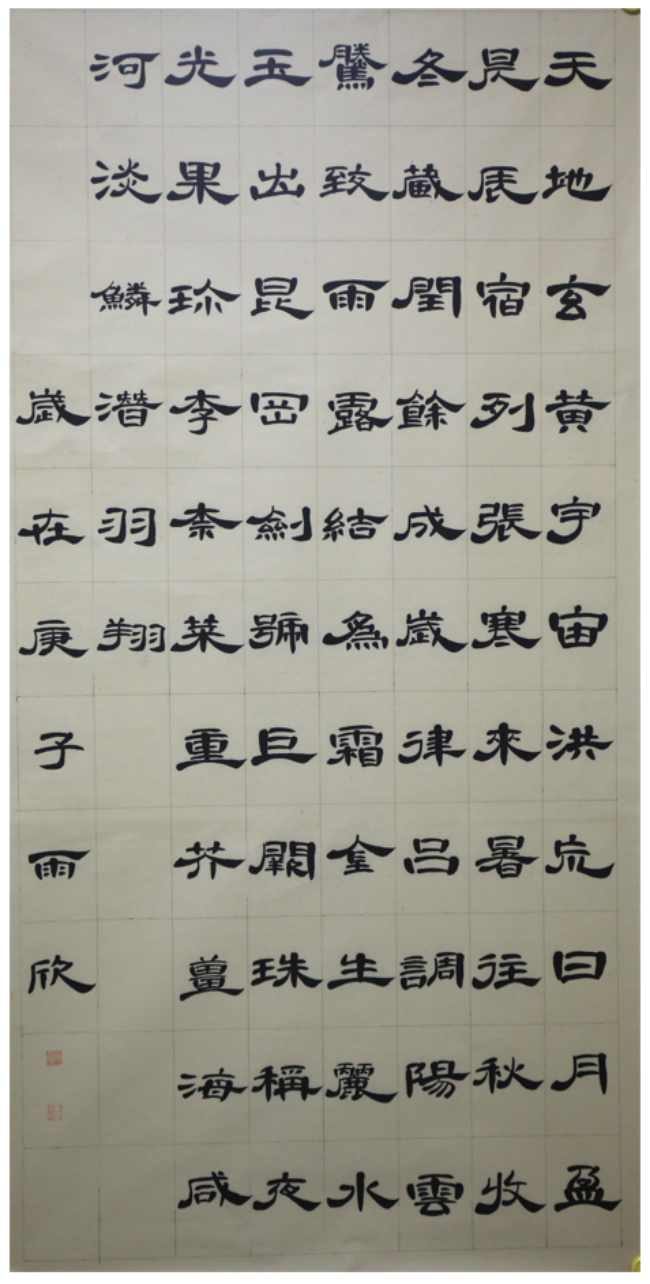 天地玄黄宇宙洪荒日月盈
昃辰宿列張寒來暑往秋收
冬蔵閏餘成歲律呂調陽雲
騰致雨露結為霜金生麗水
玉出昆岡劍號巨闕珠稱夜
光果珍李柰菜重芥薑海咸
河淡鱗潛羽翔
歲在庚子雨欣